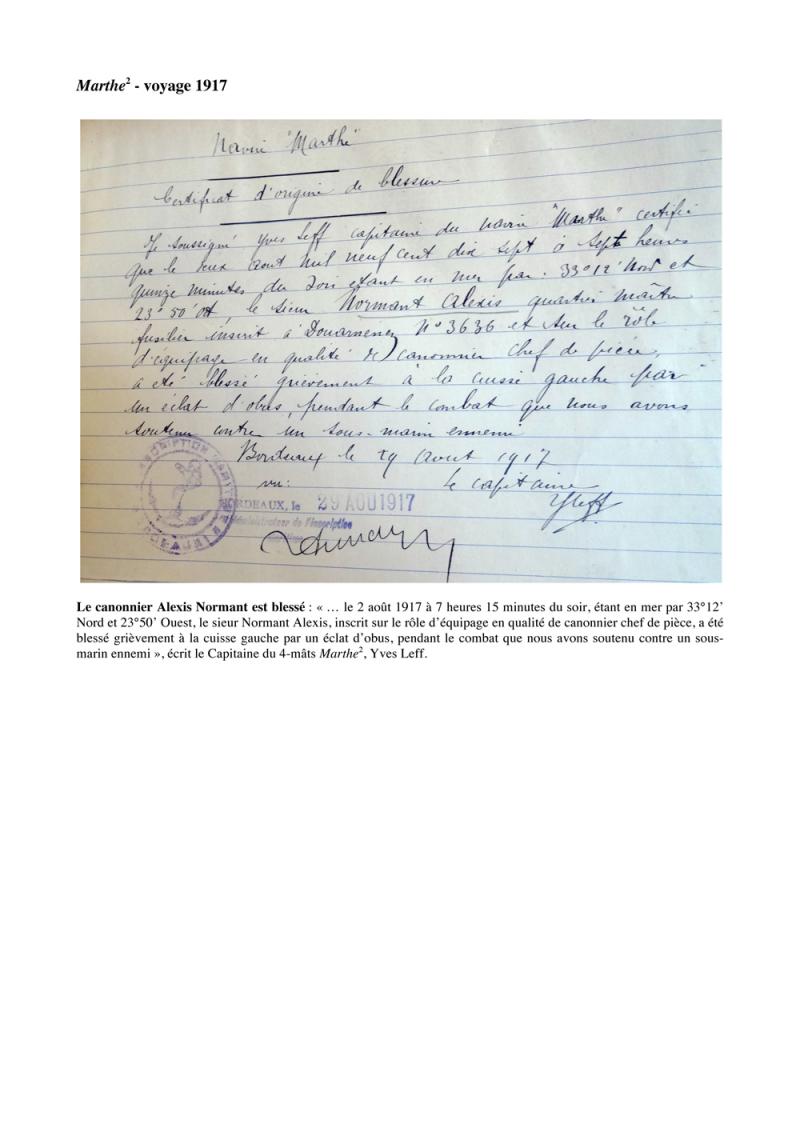 Marthe² - voyage 1917
Navire "Marthe"
Certificat d'origine de blessure
Je soussigné Yves Leff capitaine du navire "Marthe" certifie
que le deux aout mil neuf cent dix sept à sept heures
quinze minutes du soir etant en mer par 33°12' Nord et
23°50' Ot, le sieur Normant Alexis quartier maître
fusilier inscrit à Douarnenez N° 3636 et sur le rôle
d'équipage en qualité de canonnier chef de pièce,
a été blessé grièvement à la cuisse gauche par
un éclat d'obus, pendant le combat que nous avons
soutenu contre un sous-marin ennemi
Bordeaux le 29 Aout 1917
vu: Le capitaine
BORDEAUX, le 29 AOU 1917 YLeff
Administrateur de l'Inscription
Le canonnier Alexis Normant est blessé : « … le 2 août 1917 à 7 heures 15 minutes du soir, étant en mer par 33°12’
Nord et 23°50’ Ouest, le sieur Normant Alexis, inscrit sur le rôle d’équipage en qualité de canonnier chef de pièce, a été
blessé grièvement à la cuisse gauche par un éclat d’obus, pendant le combat que nous avons soutenu contre un sous-
marin ennemi », écrit le Capitaine du 4-mâts Marthe², Yves Leff.